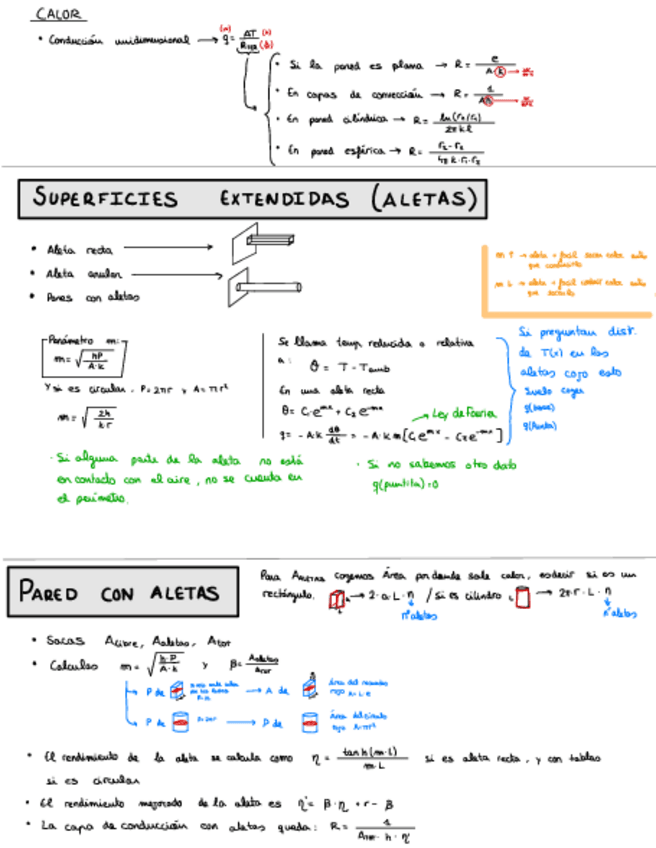 CALOR
• Conducción unidimensional → q = ΔT / R
• Si la pared es plana → R = e / A·k
• En capas de convección → R = 1 / A·h
• En pared cilíndrica → R = ln(r₂/r₁) / 2πkl
• En pared esférica → R = r₂-r₁ / 4πk·r₁·r₂
SUPERFICIES EXTENDIDAS (ALETAS)
• Aleta recta
• Aleta anular
• Pared con aletas
m ↑ → aleta + facil sacar calor
que conducirlo
m ↓ → aleta + facil calor
que sacarlo
Parámetro m:
m = √(hP / A·k)
Y si es circular. P=2πr y A=πr²
m = √(2h / k·r)
Se llama temp. reducida o relativa
a:
θ = T - Tamb
En una aleta recta
θ = C₁e^mx + C₂e^-mx
→ Ley de Fourier
q = -A·k dθ/dt = -A·k·m[C₁e^mx - C₂e^-mx]
Si preguntan dist.
de T(x) en las
aletas cojo esto
Suelo coger
q(base)
q(Punta)
· Si alguna parte de la aleta no está
en contacto con el aire, no se cuenta en
el perímetro.
· Si no sabemos otro dato
q(puntita)=0
PARED CON ALETAS
Para Aaletas cogemos Área por donde sale calor, es decir si es un
rectángulo. → 2·a·L·n / si es cilindro → 2π·r·L·n
nº aletas nº aletas
• Sacas Alibre, Aaletas, Atot
• Calculas m = √(h·P / A·k) y β = Aaletas / Atot
P de → A de Área del
rojo
P de → A de Área del círculo
rojo A=πr²
• El rendimiento de la aleta se calcula como η = tanh(m·L) / m·L si es aleta recta, y con tablas
si es circular
• El rendimiento mejorado de la aleta es η' = β·η + 1 - β
• La capa de conducción con aletas queda: R = 1 / Atot · h · η'